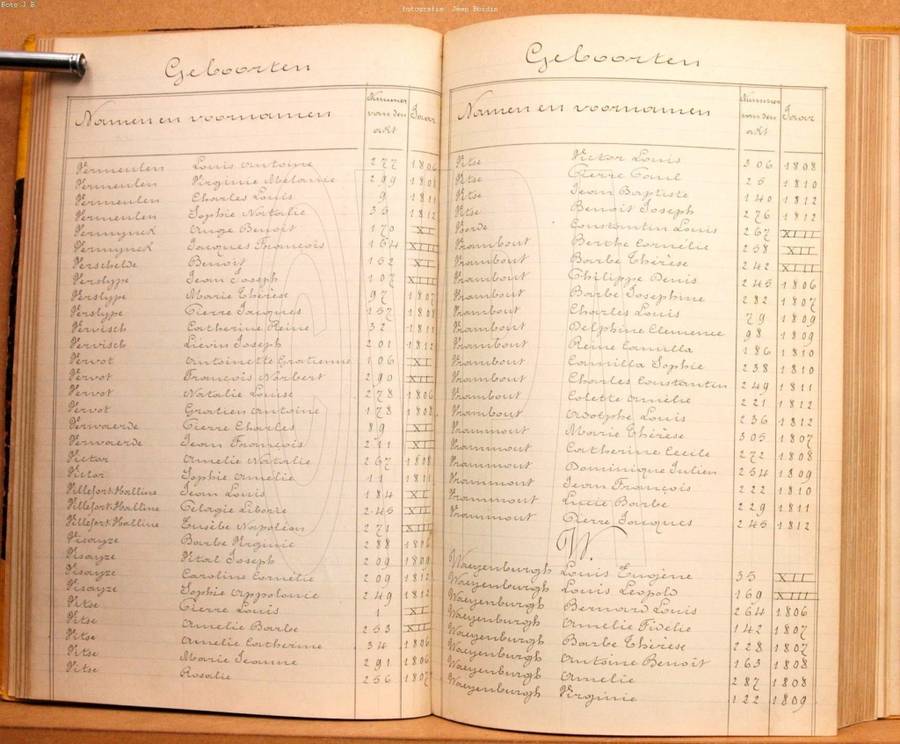 Foto J.B.
fotografie Jeep Bordin
Geboorten
Namen en voornamen Nummer van den akt Jaar
Vermeulen Louis Antoine 277 1806
Vermeulen Virginie Mélanie 299 1808
Vermeulen Charles Louis 9 1811
Vermeulen Sophie Natalie 35 1812
Vermynck Ange Benoit 170 XI
Vermynck Jacques François 164 XIII
Verschelde Benoit 152 XI
Verslype Jean Joseph 107 XIII
Verslype Marie Thérèse 97 1807
Verslype Pierre Jacques 157 1808
Vervisch Catherine Reine 32 1811
Vervisch Lievin Joseph 201 1812
Vervot Antoinette Gratienne 106 XI
Vervot François Norbert 290 XII
Vervot Natalie Louise 278 1806
Vervot Gratien Antoine 178 1808
Verwaerde Pierre Charles 89 XI
Verwaerde Jean François 211 XII
Victor Amelie Natalie 267 1808
Victor Sophie Amélie 11 1811
Villefort Halline Jean Louis 184 XI
Villefort Halline Pélagie Liborie 245 XII
Villefort Halline Eusèbe Napoléon 271 XIII
Visayze Barbe Virginie 288 1806
Visayze Vital Joseph 209 1809
Visayze Caroline Cornélie 209 1812
Visayze Sophie Appolonie 249 1812
Vitse Pierre Louis 1 XI
Vitse Amelie Barbe 253 XII
Vitse Amelie Catherine 34 1806
Vitse Marie Jeanne 291 1806
Vitse Rosalie 256 1807
Geboorten
Namen en voornamen Nummer van den akt Jaar
Vitse Victor Louis 306 1808
Vitse Pierre Paul 25 1810
Vitse Jean Baptiste 140 1812
Vitse Benoit Joseph 276 1812
Constantin Louis 267 XIII
Vrambout Berthe Cornélie 258 XII
Vrambout Barbe Thérèse 242 XIII
Vrambout Philippe Denis 245 1806
Vrambout Barbe Josephine 282 1807
Vrambout Charles Louis 79 1809
Vrambout Delphine Clemence 98 1809
Vrambout Reine Camilla 186 1810
Vrambout Camilla Sophie 238 1810
Vrambout Charles Constantin 249 1811
Vrambout Colette Amélie 221 1812
Vrambout Adolphe Louis 236 1812
Vrammout Marie Thérèse 305 1807
Vrammout Catherine Cecile 272 1808
Vrammont Dominique Julien 254 1809
Vrammont Jean François 222 1810
Vrammont Lucie Barbe 229 1811
Vrammout Pierre Jacques 245 1812
W.
Waeyenburgh Louis Eugène 35 XII
Waeyenburgh Louis Leopold 169 XIII
Waeyenburgh Bernard Louis 264 1806
Waeyenburgh Amélie Fidelie 142 1807
Waeyenburgh Barbe Thérèse 228 1807
Waeyenburgh Antoine Benoit 163 1808
Waeyenburgh Amelie 287 1808
Waeyenburgh Virginie 122 1809